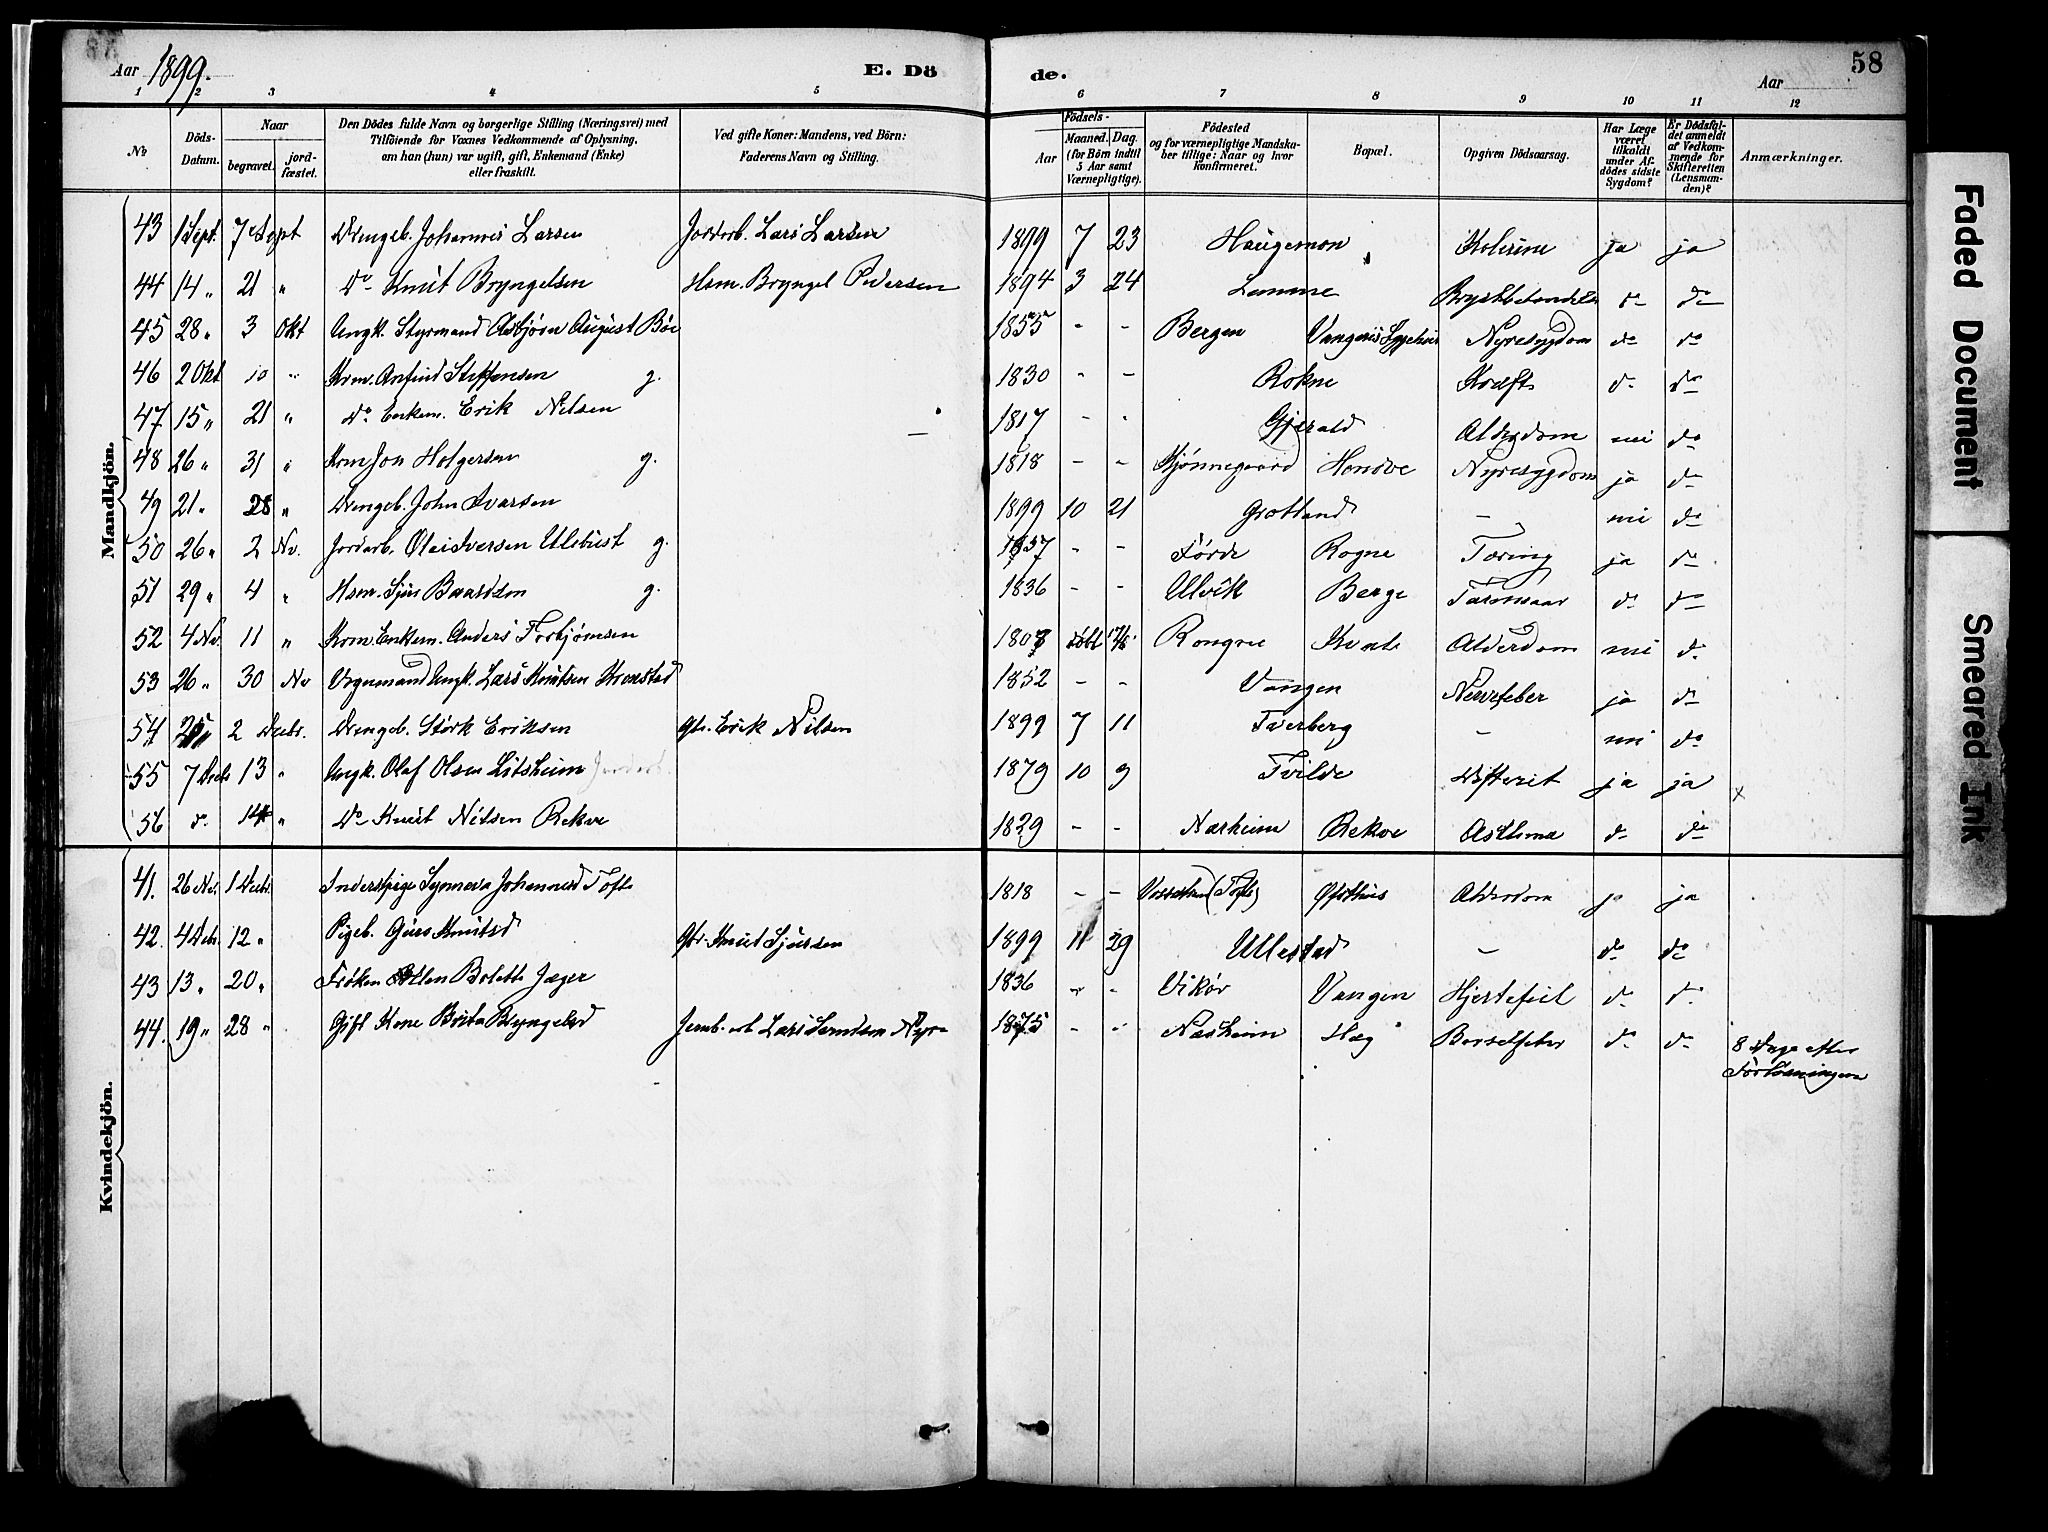 Aar 1899. E. Dö de. Aar 58
1 2 3 4 5 6 7 8 9 10 11 12
№ Döds-Datum. Naar begravet. jord-fæstet. Den Dödes fulde Navn og borgerlige Stilling (Næringsvei) med Tilföiende for Voxnes Vedkommende af Oplysning, om han (hun) var ugift, gift, Enkemand (Enke) eller fraskilt. Ved gifte Koner: Mandens, ved Börn: Faderens Navn og Stilling. Födsels- Aar Maaned. Dag. (for Börn indtil 5 Aar samt Værnepligtige). Födested og for værnepligtige Mandska-ber tillige: Naar og hvor konfirmeret. Bopæl. Opgiven Dödsaarsag. Har Læge været tilkaldt under Af-dödes sidste Sygdom? Er Dödsfal-det anmeldt af Vedkom-mende for Skifteretten (Lensman-den)? Anmærkninger.
Mandkjön.
43 1 Sept. 7 Sept Drengeb. Johannes Larsen Jordarb. Lars Larsen 1899 7 23 Haugemon Kolerine ja ja
44 14 " 21 " Do Knut Bryngelsen Hsm. Bryngel Pedersen 1894 3 24 Lemme do do
45 28 " 3 Okt Ungk. Styrmand Asbjørn August Bøe 1855 - - Bergen Vangens Sygehus Nyresygdom do do
46 2 Okt 10 " Krm. Anfind Steffensen g. 1830 - - Rokne Kræft do do
47 15 " 21 " Do Enkem. Erik Nilsen 1817 - - Gjerald Alderdom nei do
48 26 " 31 " Krm Jon Holgersen g. 1818 - - Kjønnegaard Hondve Nyresygdom ja do
49 21 " 28 " Drengeb. John Ivarsen 1899 10 21 Grotland - nei do
50 26 " 2 Nv. Jordarb. Ole Iversen Ulsbust g. 1857 - - Førde Rogne Tæring ja do
51 29 " 4 " Hsm. Sjur Baardsen g. 1836 - - Ulvik Berge do do
52 4 Nv. 11 " Krm. Enkem. Anders Torbjørnsen 1807 døbt Rongve Kvale Alderdom nei do
53 26 " 30 Nv Vognmand Ungk. Lars Knutsen Kronstad 1852 - - Vangen Nervefeber ja do
54 25 2 Decbr. Drengeb. Størk Eriksen Gbr. Erik Nilsen 1899 7 11 Tverberg - nei do
55 7 Decb 13 " Ungk. Olaf Olsen Litsheim 1879 10 9 Tvilde Difterit ja ja x
56 do 14 " Do Knut Nilsen Rekve 1829 - - Næsheim Rekve Asthma do do
Kvindekjön.
41. 26 Nv. 1 Decbr. Inderstpige Synneva Johannesd Tofte 1818 - - Vossestran (Tofte) Alderdom ja ja
42. 4 Decbr. 12 " Pigeb. Guro Knutsd Gbr. Knut Sjursen 1899 11 29 Ullestad - do do
43 13 " 20 " Frøken Ellen Bolette Jæger 1836 - - Vikør Vangen Hjertefeil do do
44. 19 " 28 " Gift Kone Brita Bryngelsd Lars Nyre 1875 - - Næsheim Hæg Barselfeber do do 8 Dage efter
Forløsningen
Faded Document
Smeared Ink